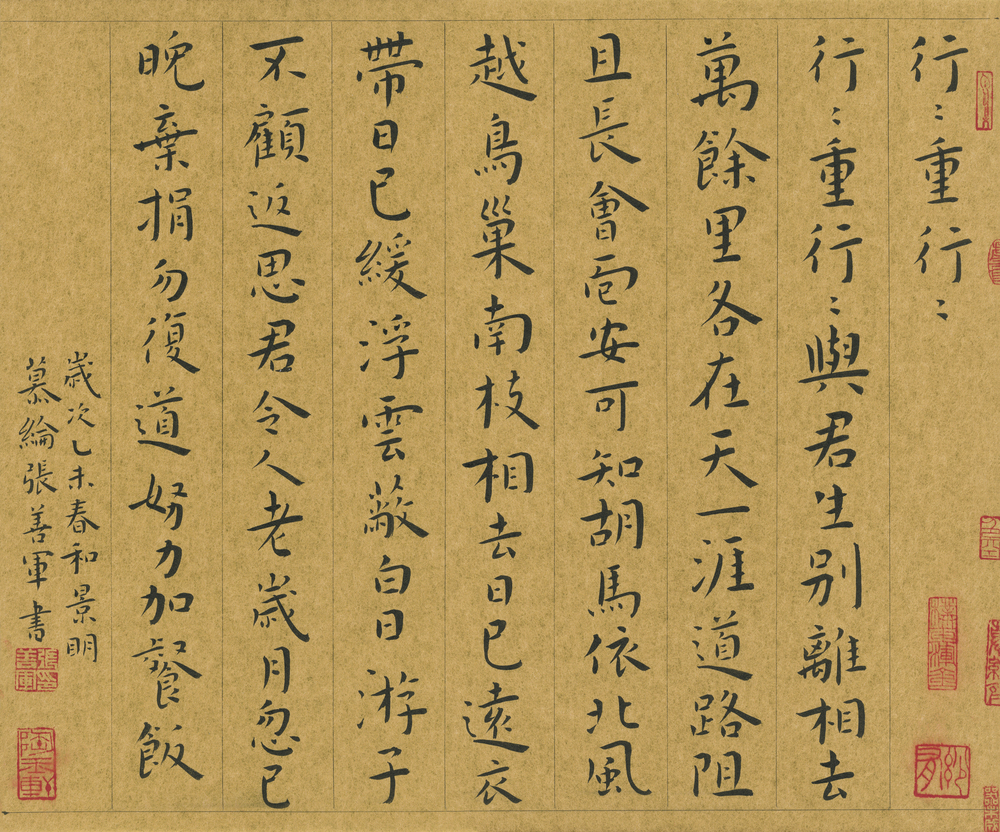 行〻重行〻
行〻重行〻與君生別離相去
萬餘里各在天一涯道路阻
且長會面安可知胡馬依北風
越鳥巢南枝相去日已遠衣
帶日已緩浮雲蔽白日游子
不顧返思君令人老歲月忽已
晚棄捐勿復道努力加餐飯
歲次乙未春和景明
慕綸張善軍書